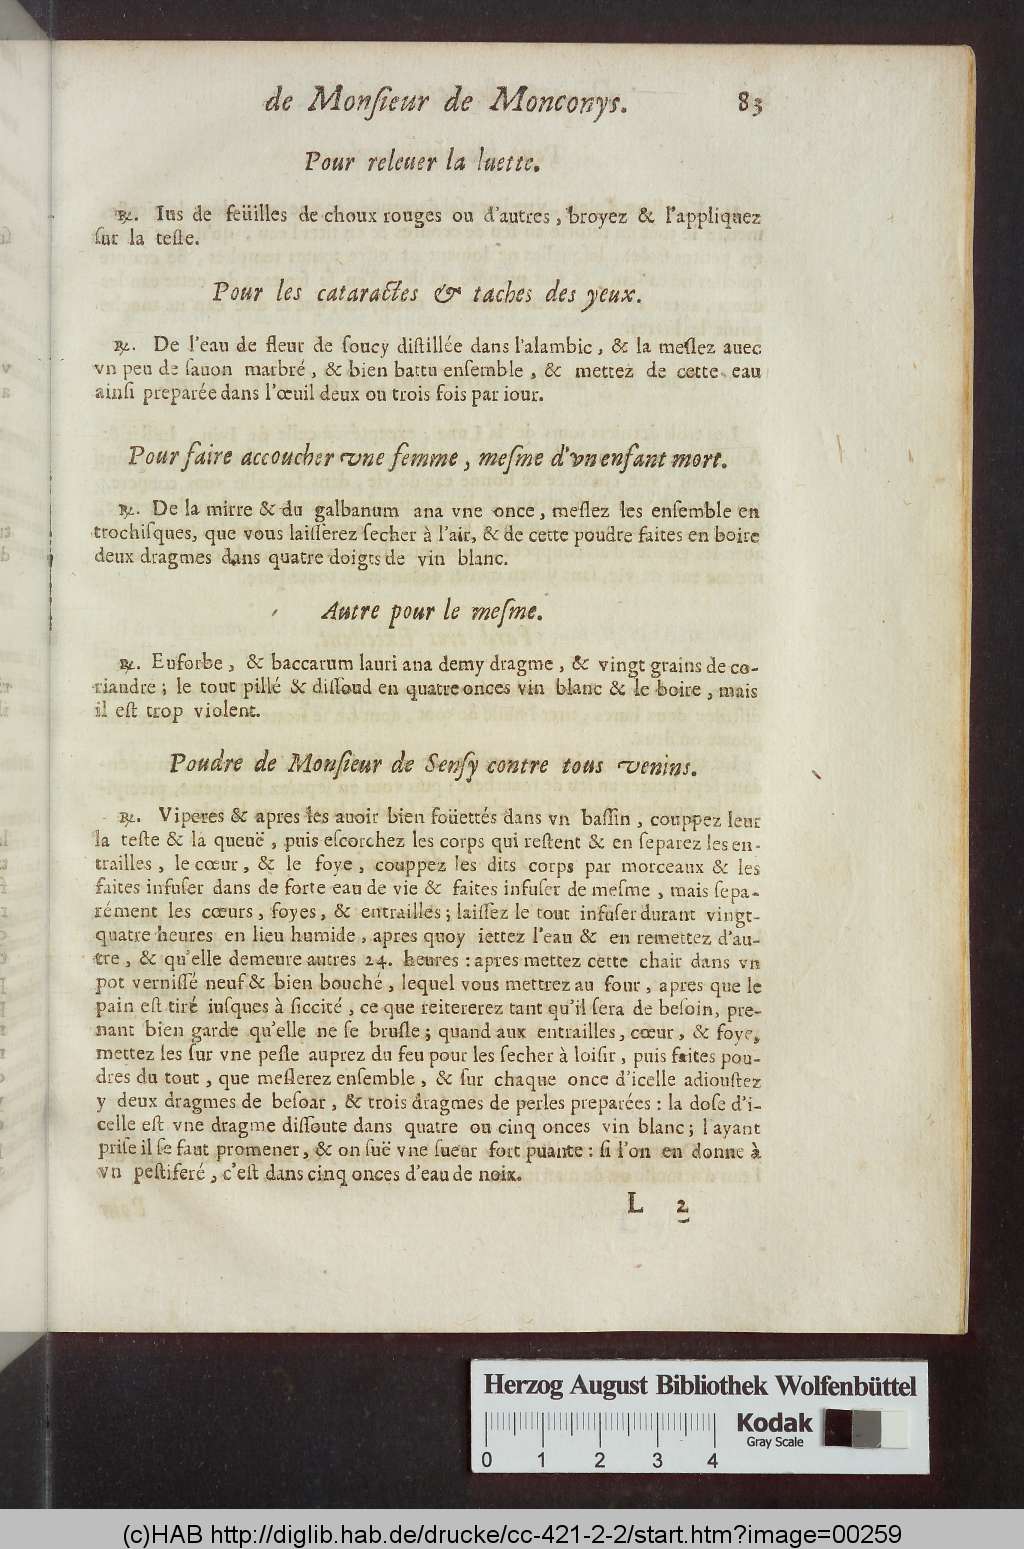 de Monſieur de Monconys. 83
Pour releuer la luette.
℞. Ius de feüilles de choux rouges ou d'autres, broyez & l'appliquez
ſur la teſte.
Pour les cataractes & taches des yeux.
℞. De l'eau de fleur de ſoucy diſtillée dans l'alambic, & la meſlez auec
vn peu de ſauon marbré, & bien battu enſemble, & mettez de cette eau
ainſi preparée dans l'œuil deux ou trois fois par iour.
Pour faire accoucher vne femme, meſme d'vn enfant mort.
℞. De la mirre & du galbanum ana vne once, meſlez les enſemble en
trochiſques, que vous laiſſerez ſecher à l'air, & de cette poudre faites en boire
deux dragmes dans quatre doigts de vin blanc.
Autre pour le meſme.
℞. Euforbe, & baccarum lauri ana demy dragme, & vingt grains de co-
riandre; le tout pillé & diſſoud en quatre onces vin blanc & le boire, mais
il eſt trop violent.
Poudre de Monſieur de Senſy contre tous venins.
℞. Viperes & apres les auoir bien foüettés dans vn baſſin, couppez leur
la teſte & la queuë, puis eſcorchez les corps qui reſtent & en ſeparez les en-
trailles, le cœur, & le foye, couppez les dits corps par morceaux & les
faites infuſer dans de forte eau de vie & faites infuſer de meſme, mais ſepa-
rément les cœurs, foyes, & entrailles; laiſſez le tout infuſer durant vingt-
quatre heures en lieu humide, apres quoy iettez l'eau & en remettez d'au-
tre, & qu'elle demeure autres 24. heures: apres mettez cette chair dans vn
pot verniſſé neuf & bien bouché, lequel vous mettrez au four, apres que le
pain eſt tiré iuſques à ſiccité, ce que reitererez tant qu'il ſera de beſoin, pre-
nant bien garde qu'elle ne ſe bruſle; quand aux entrailles, cœur, & foye,
mettez les ſur vne peſle auprez du feu pour les ſecher à loiſir, puis faites pou-
dres du tout, que meſlerez enſemble, & ſur chaque once d'icelle adiouſtez
y deux dragmes de beſoar, & trois dragmes de perles preparées: la doſe d'i-
celle eſt vne dragme diſſoute dans quatre ou cinq onces vin blanc; l'ayant
priſe il ſe faut promener, & on ſuë vne ſueur fort puante: ſi l'on en donne à
vn peſtiferé, c'eſt dans cinq onces d'eau de noix.
L 2
Herzog August Bibliothek Wolfenbüttel
Kodak
Gray Scale
0 1 2 3 4
(c)HAB http://diglib.hab.de/drucke/cc-421-2-2/start.htm?image=00259